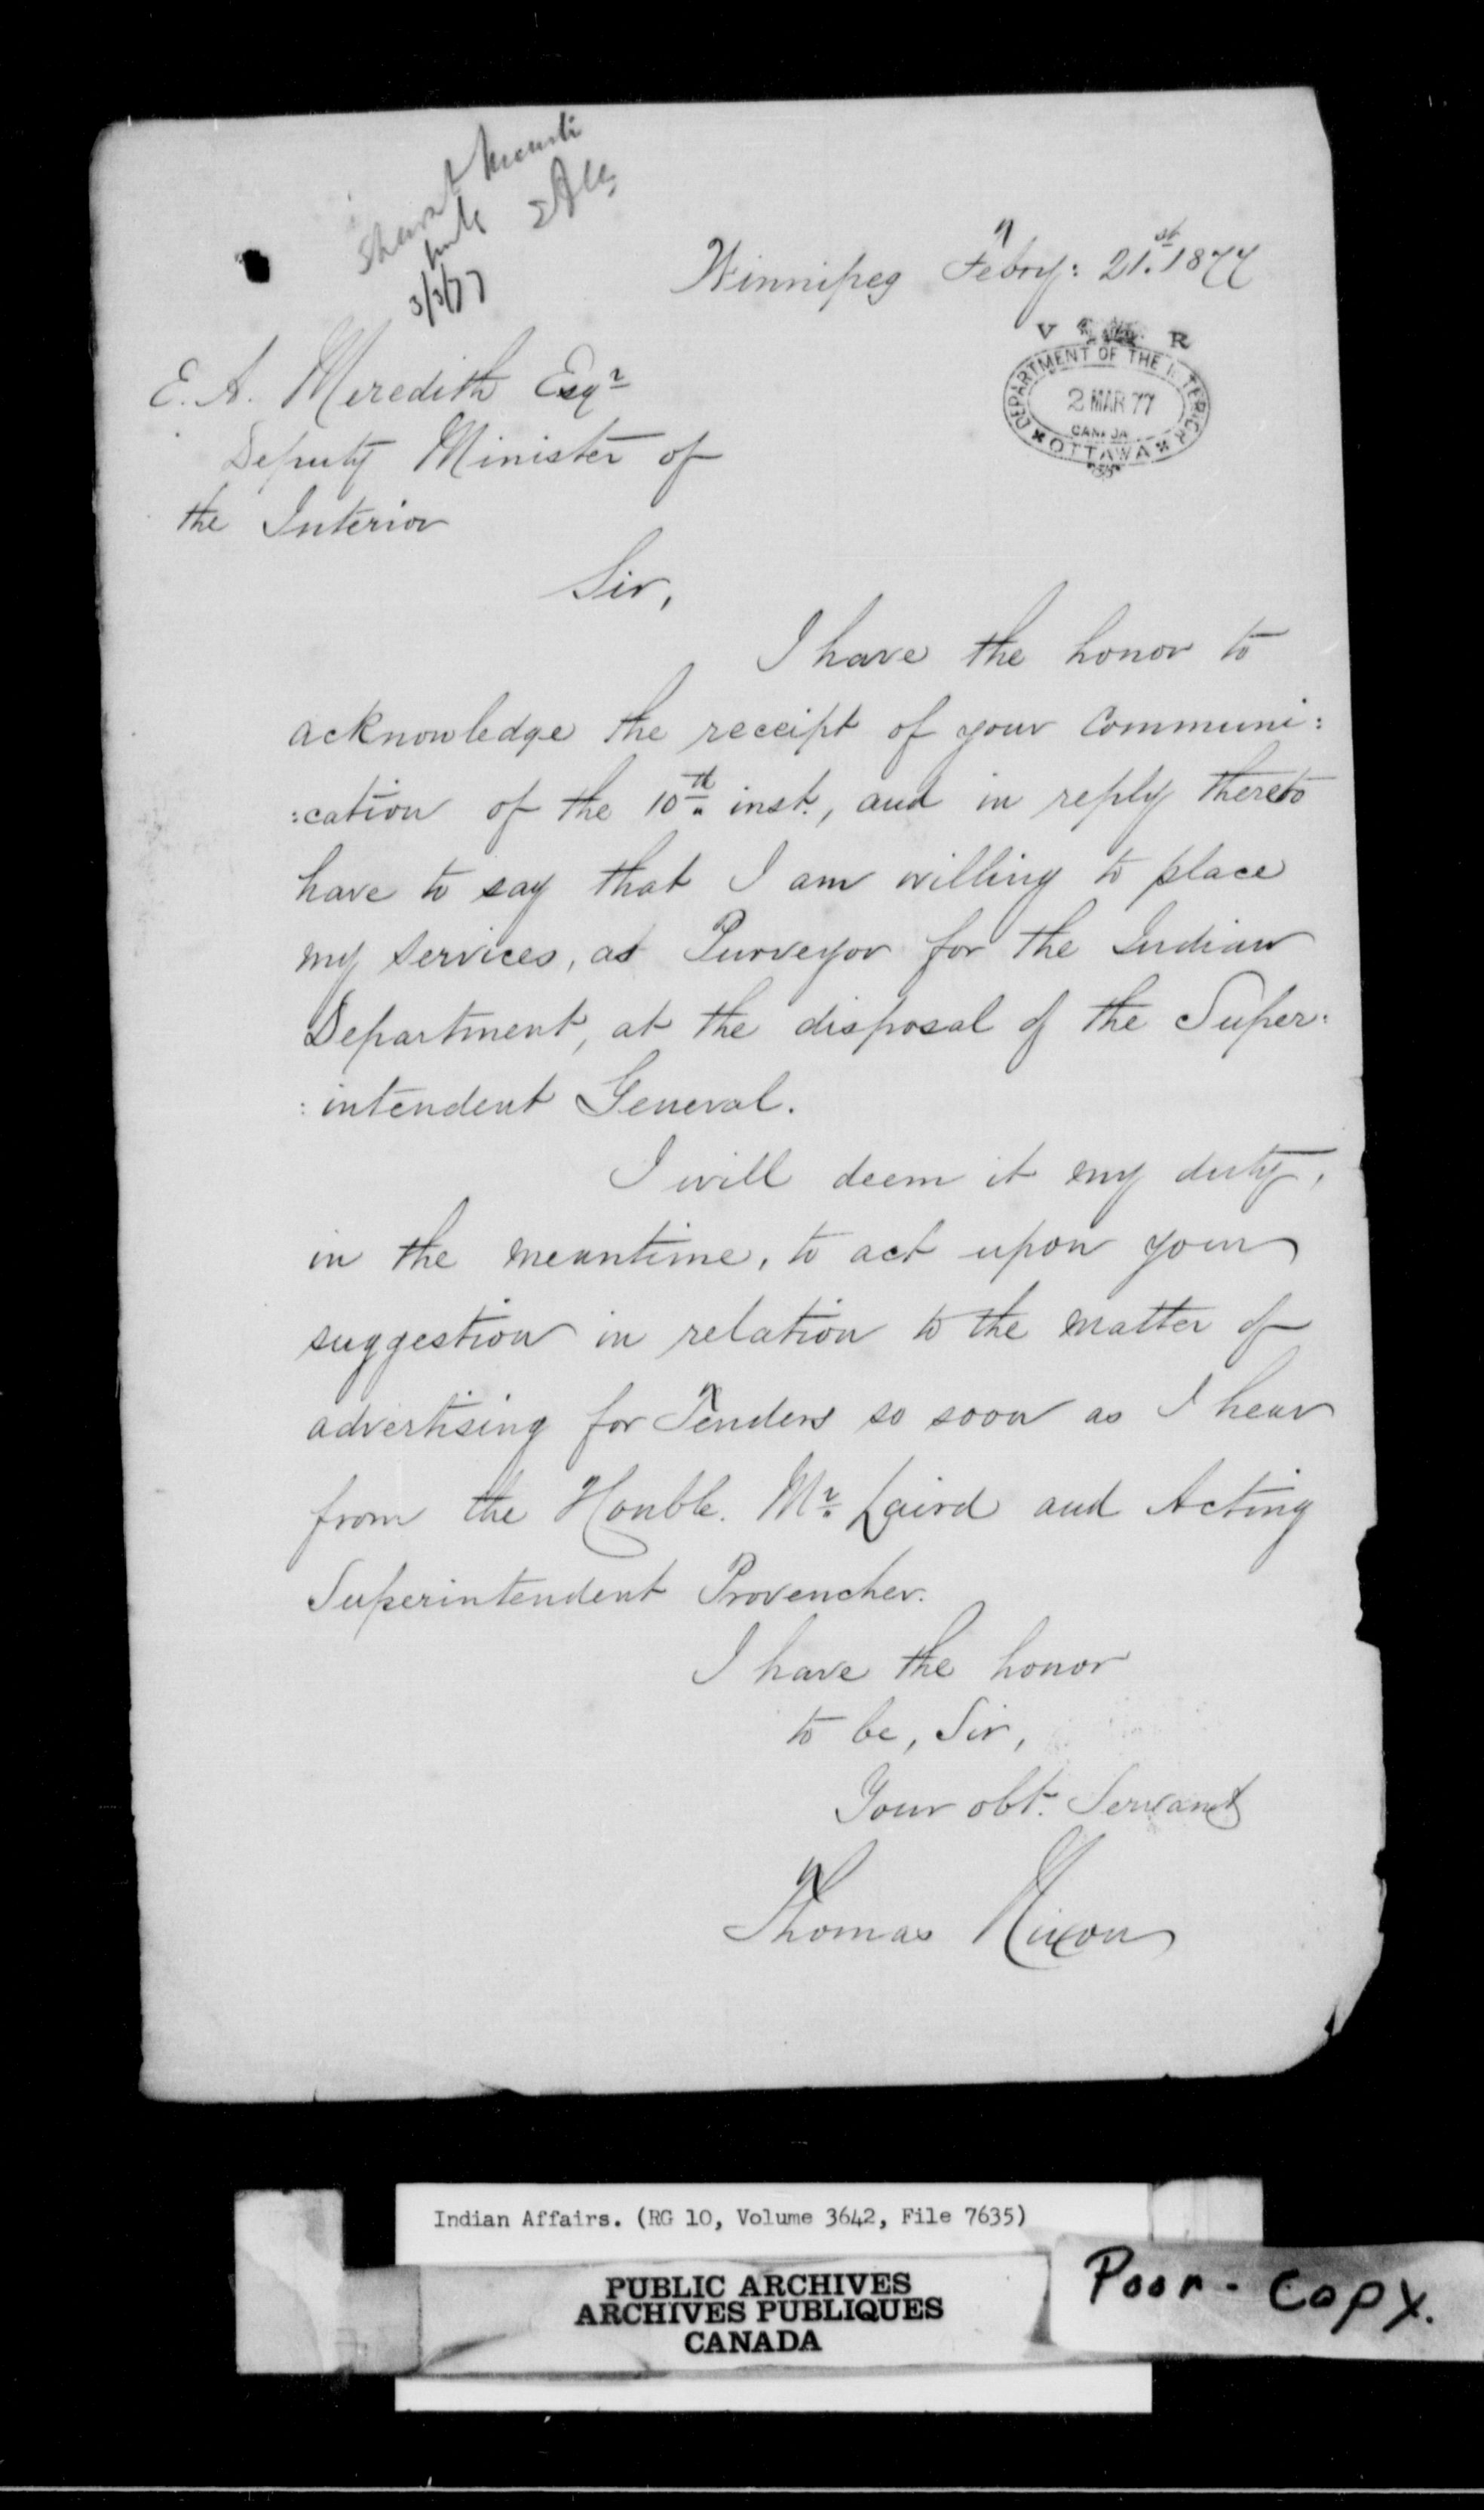 3/3/77
Winnipeg Febry: 21st. 1877
V R
DEPARTMENT OF THE INTERIOR
2 MAR 77
CANADA
OTTAWA
E. A. Meredith Esqr
Deputy Minister of
the Interior
Sir,
I have the honor to
acknowledge the receipt of your Communi:
:cation of the 10th. inst., and in reply thereto
have to say that I am willing to place
my services, as Purveyor for the Indian
Department, at the disposal of the Super:
:intendent General.
I will deem it my duty,
in the meantime, to act upon your
suggestion in relation to the matter of
advertising for Tenders so soon as I hear
from the Honble. Mr. Laird and Acting
Superintendent Provencher.
I have the honor
to be, Sir,
Your obt. Servant
Thomas Nixon
Indian Affairs. (RG 10, Volume 3642, File 7635)
PUBLIC ARCHIVES
ARCHIVES PUBLIQUES
CANADA
Poor - Copy.